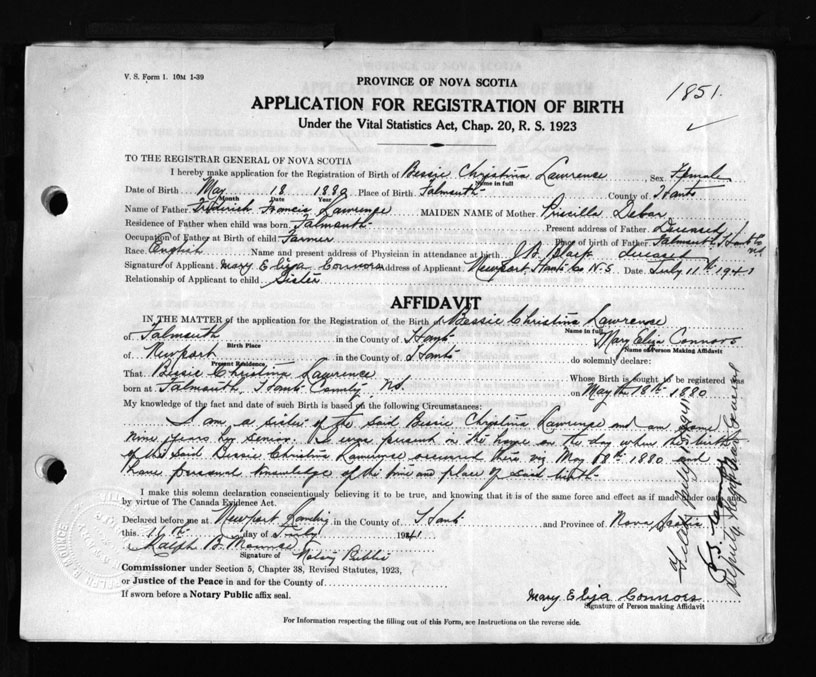 V. S. Form 1. 10M 1-39
PROVINCE OF NOVA SCOTIA
1851.
APPLICATION FOR REGISTRATION OF BIRTH
Under the Vital Statistics Act, Chap. 20, R. S. 1923
TO THE REGISTRAR GENERAL OF NOVA SCOTIA
I hereby make application for the Registration of Birth of Bessie Christina Lawrence Sex Female
Name in full
Date of Birth May 18 1880 Place of Birth Falmouth County of Hants
Month Date Year
Name of Father Frederick Francis Lawrence MAIDEN NAME of Mother Priscilla
Residence of Father when child was born Falmouth Present address of Father Deceased
Occupation of Father at Birth of child Farmer Place of birth of Father Falmouth Hants Co
Race English Name and present address of Physician in attendance at birth J. B. Black deceased
Signature of Applicant Mary Eliza Connors Address of Applicant Newport Hants Co N.S. Date July 11th 1941
Relationship of Applicant to child Sister
AFFIDAVIT
IN THE MATTER of the application for the Registration of the Birth of Bessie Christina Lawrence
Name in full
of Falmouth in the County of Hants Mary Eliza Connors
Birth Place Name of Person Making Affidavit
of Newport in the County of Hants do solemnly declare:
Present Residence
That Bessie Christina Lawrence Whose Birth is sought to be registered was
born at Falmouth, Hants County, N.S. on May the 18th 1880
My knowledge of the fact and date of such Birth is based on the following Circumstances:
I am a sister of the said Bessie Christina Lawrence and am some
nine years her senior. I was present in the home on the day when the birth
of the said Bessie Christina Lawrence occurred there viz May 18th 1880 and
I have personal knowledge of the time and place of said birth
I make this solemn declaration conscientiously believing it to be true, and knowing that it is of the same force and effect as if made under oath and
by virtue of The Canada Evidence Act.
Declared before me at Newport Landing in the County of Hants and Province of Nova Scotia
this 11th day of July 1941
Ralph B.
Signature of Notary Public
Commissioner under Section 5, Chapter 38, Revised Statutes, 1923,
or Justice of the Peace in and for the County of
If sworn before a Notary Public affix seal.
Mary Eliza Connors
Signature of Person making Affidavit
For Information respecting the filling out of this Form, see Instructions on the reverse side.
Filed July
Deputy Registrar General